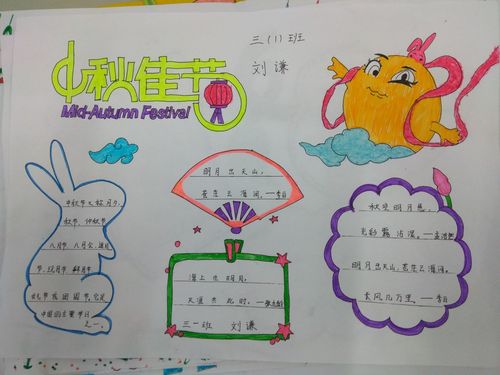 三(1)班
刘谦
中秋佳节
Mid-Autumn Festival
中秋节又称月夕、
秋节、仲秋节、
八月节、八月会、追月
节、玩月节、拜月节、
女儿节或团圆节,它是
中国的主要节日
之一。
明月出天山,
苍茫云海间。——李白
海上生明月,
天涯共此时。——张九龄
三一班 刘谦
秋空明月悬,
光彩露沾湿。——孟浩然
明月出天山,苍茫云海间。
长风几万里,——李白